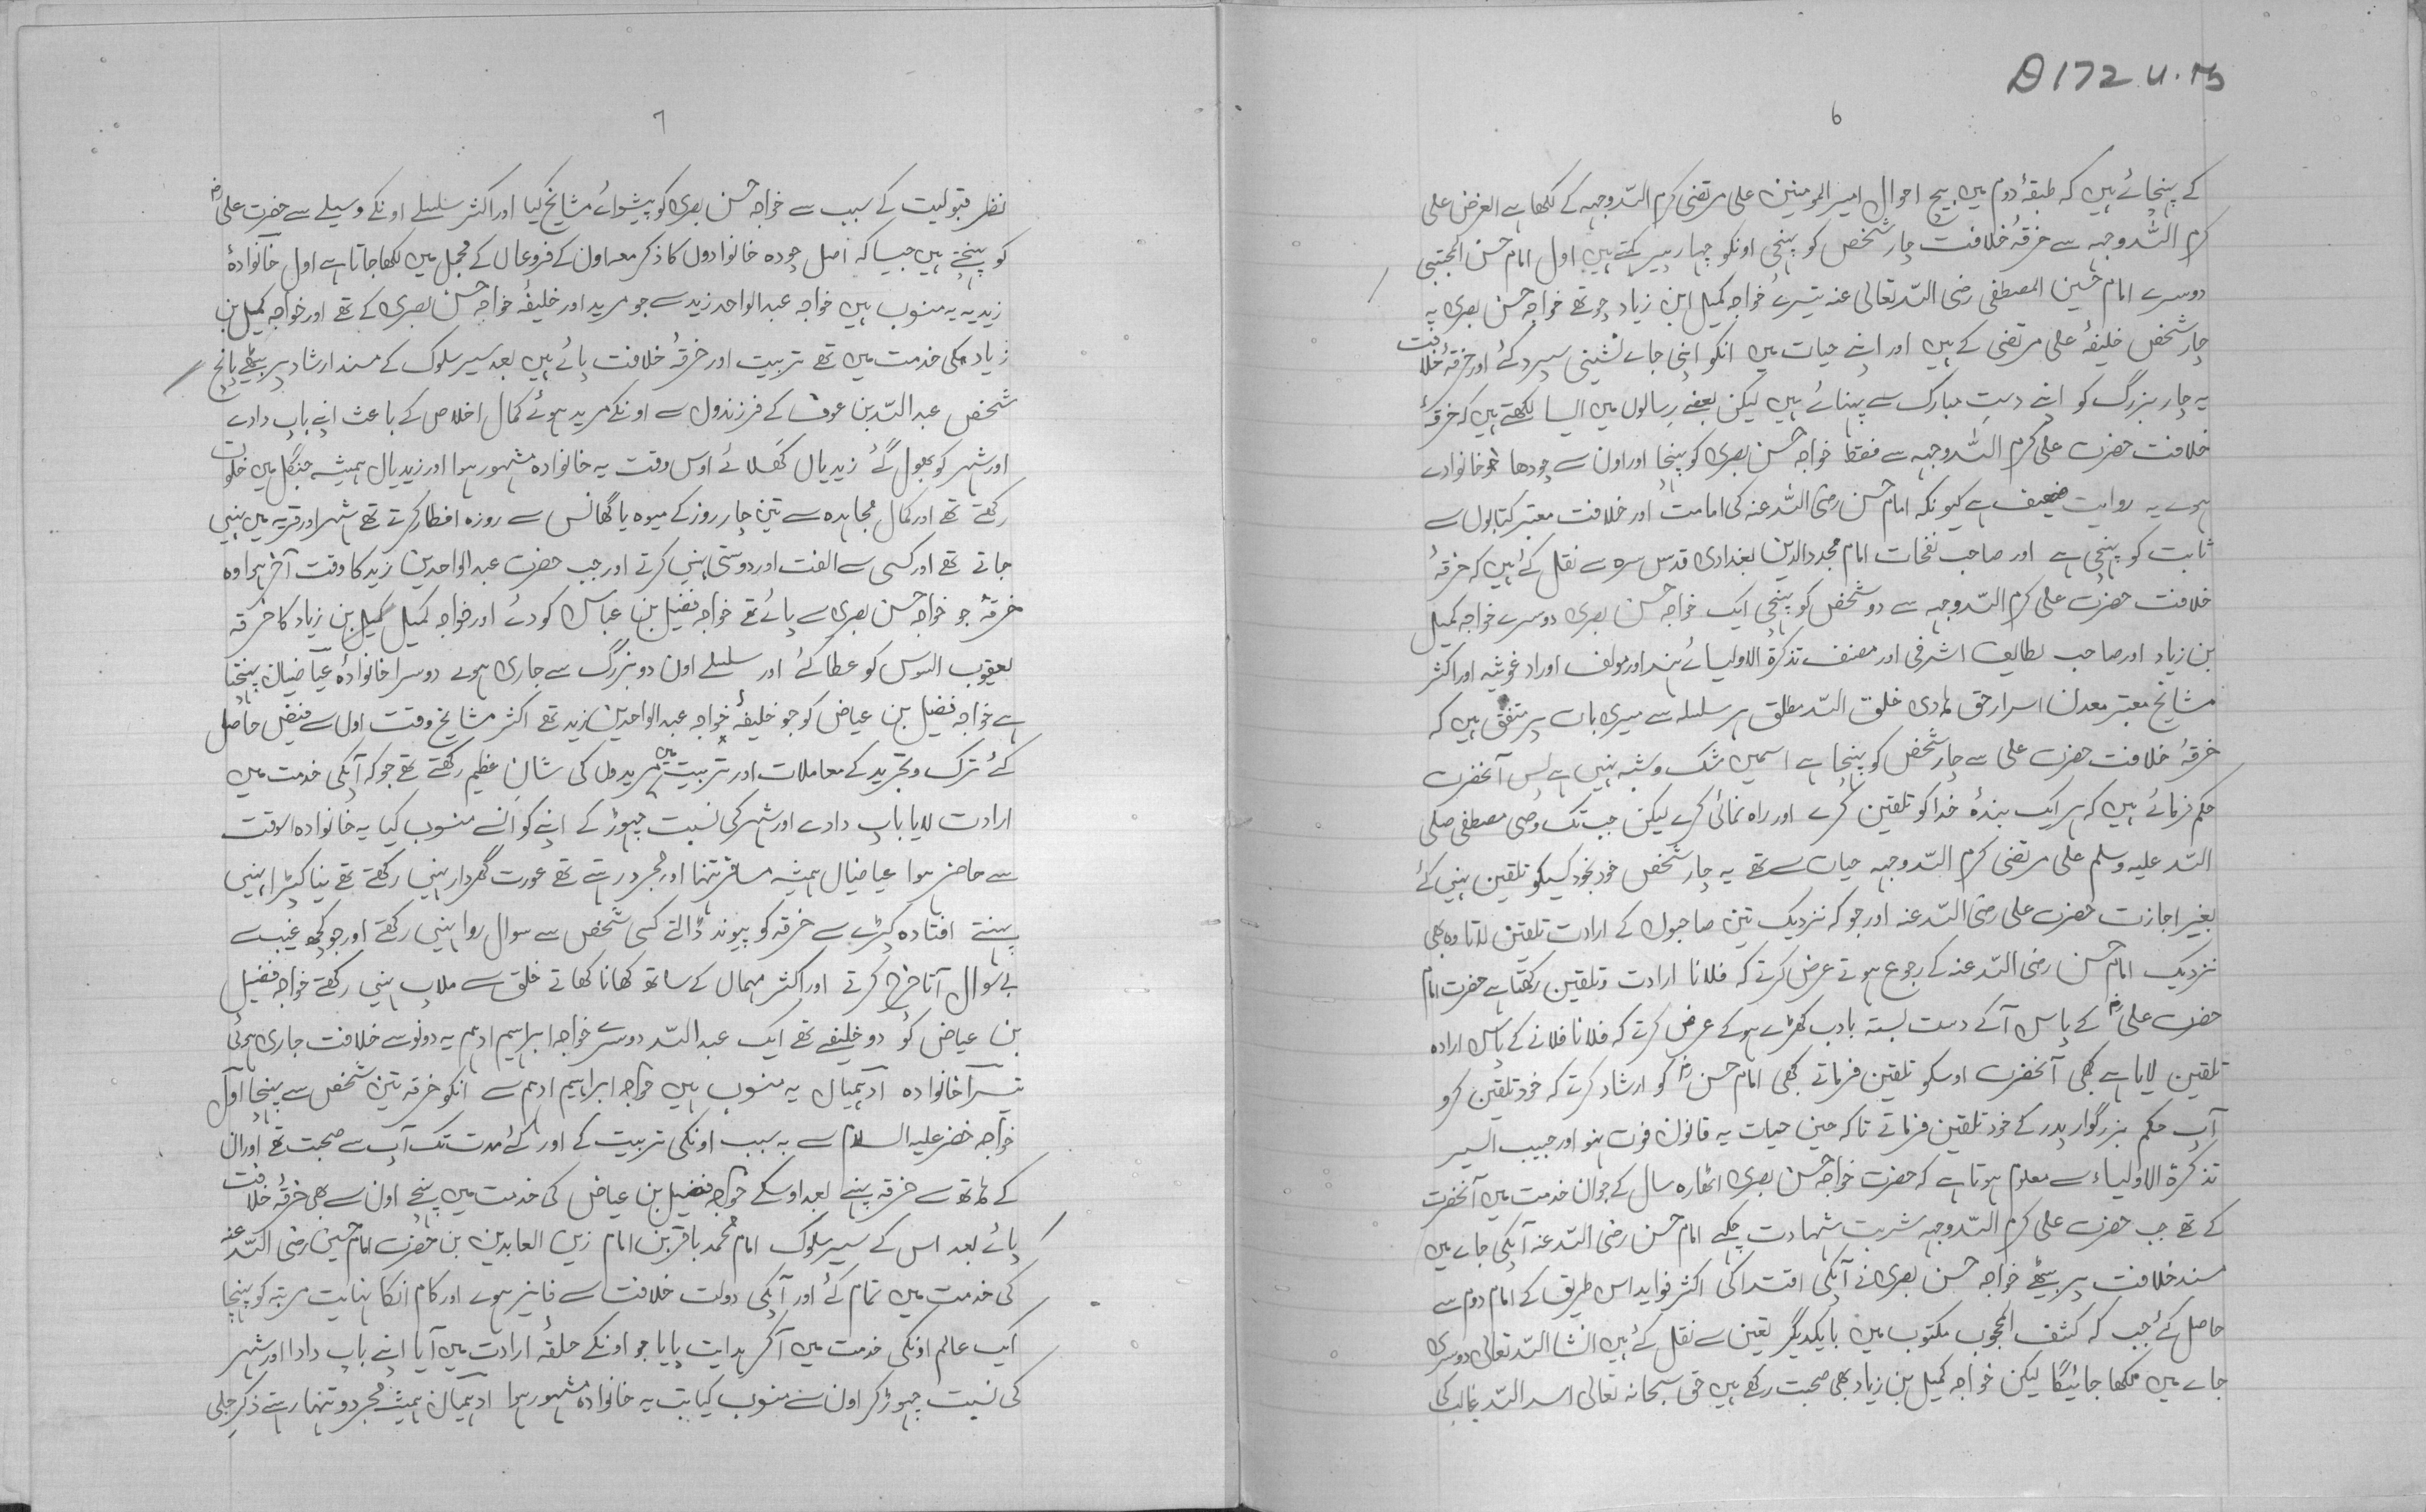 D 172 U.M
6
کے پہنچائے ہیں کہ طبقۂ دوم میں بیچ احوال امیر المومنین علی مرتضی کرم اللہ وجہہ کے لکھا ہے الغرض علی
کرم اللہ وجہہ سے خرقۂ خلافت چار شخص کو پہنچی اونکو چہار پیر کہتے ہیں اول امام حسن المجتبی
دوسرے امام حسین المصطفی رضی اللہ تعالی عنہ تیسرے خواجہ کمیل ابن زیاد چوتھے خواجہ حسن بصری یہ
چار شخص خلیفۂ علی مرتضی کے ہیں اور اپنے حیات میں انکو اپنی جاے نشینی سپرد کئے اور خرقۂ خلافت
یہ چار بزرگ کو اپنے دست مبارک سے پہنائے ہیں لیکن بعضے رسالوں میں ایسا لکھتے ہیں کہ خرقۂ
خلافت حضرت علی کرم اللہ وجہہ سے فقط خواجہ حسن بصری کو پہنچا اور اون سے چودھا خانوادے
ہوے یہ روایت ضعیف ہے کیونکہ امام حسن رضی اللہ عنہ کی امامت اور خلافت معتبر کتابوں سے
ثابت کو پہنچی ہے اور صاحب نفحات امام مجدد الدین بغدادی قدس سرہ سے نقل کئے ہیں کہ خرقۂ
خلافت حضرت علی کرم اللہ وجہہ سے دو شخص کو پہنچی ایک خواجہ حسن بصری دوسرے خواجہ کمیل
بن زیاد اور صاحب لطایف اشرفی اور مصنف تذکرة الاولیائے ہند اور مولف اوراد غوثیہ اور اکثر
مشایخ معتبر معدن اسرار حق ہادی خلق اللہ مطلق ہر سلسلہ سے میری بات پر متفق ہیں کہ
خرقۂ خلافت حضرت علی سے چار شخص کو پہنچا ہے اسمیں شک و شبہ نہیں ہے پس آنحضرت
حکم فرمائے ہیں کہ ہر ایک بندۂ خدا کو تلقین کرے اور راہ نمائی کرے لیکن جب تک وصی مصطفی صلی
اللہ علیہ وسلم علی مرتضی کرم اللہ وجہہ حیات سے تھے یہ چار شخص خود بخود کسیکو تلقین نہیں کئے
بغیر اجازت حضرت علی رضی اللہ عنہ اور جو کہ نزدیک تین صاحبوں کے ارادت تلقین لاتا وہ بھی
نزدیک امام حسن رضی اللہ عنہ کے رجوع ہوتے عرض کرتے کہ فلانا ارادت و تلقین رکھتا ہے حضرت امام
حضرت علیؓ کے پاس آکے دست بستہ بادب کھڑے ہوکے عرض کرتے کہ فلانا فلانے کے پاس ارادہ
تلقین لایا ہے کبھی آنحضرت اوسکو تلقین فرماتے کبھی امام حسنؓ کو ارشاد کرتے کہ خود تلقین کرو
آپ حکم بزرگوار پدر کے خود تلقین فرماتے تاکہ حین حیات یہ قانون فوت نہو اور حبیب السیر
تذکرة الاولیاء سے معلوم ہوتا ہے کہ حضرت خواجہ حسن بصری اٹھارہ سال کے جوان خدمت میں آنحضرت
کے تھے جب حضرت علی کرم اللہ وجہہ شربت شہادت چکے امام حسن رضی اللہ عنہ آپکی جاے میں
مسند خلافت پر بیٹھے خواجہ حسن بصری نے آپکی اقتدا کی اکثر فواید اس طریق کے امام دوم سے
حاصل کئے جب کہ کشف المحجوب مکتوب میں بایکدیگر یقین سے نقل کئے ہیں انشا اللہ تعالی دوسری
جاے میں لکھا جائیگا لیکن خواجہ کمیل بن زیاد بھی صحبت رکھے ہیں حق سبحانہ تعالی اسد اللہ غالب کا
7
نظر قبولیت کے سبب سے خواجہ حسن بصری کو پیشواے مشایخ کیا اور اکثر سلسلے اونکے وسیلے سے حضرت علیؓ
کو پہنچے ہیں جیسا کہ اصل چودہ خانوادوں کا ذکر معہ اون کے فروعاں کے مجمل میں لکھا جاتا ہے اول خانوادۂ
زیدیہ یہ منسوب ہیں خواجہ عبد الواحد زید سے جو مرید اور خلیفۂ خواجہ حسن بصری کے تھے اور خواجہ کمیل بن
زیاد کی خدمت میں تھے تربیت اور خرقۂ خلافت پائے ہیں بعد سیر سلوک کے مسند ارشاد پر بیٹھے پانچ
شخص عبد اللہ بن عوف کے فرزندوں سے اونکے مرید ہوئے کمال اخلاص کے باعث اپنے باپ دادے
اور شہر کو بھول گئے زیدیاں کہلائے اوس وقت یہ خانوادہ مشہور ہوا اور زیدیاں ہمیشہ جنگل میں خلوت
رکھتے تھے اور کمال مجاہدہ سے تین چار روز کے میوہ یا گھانس سے روزہ افطار کرتے تھے شہر اور قریہ میں نہیں
جاتے تھے اور کسی سے الفت اور دوستی نہیں کرتے اور جب حضرت عبد الواحد بن زید کا وقت آخر ہوا وہ
خرقہ جو خواجہ حسن بصری سے پائے تھے خواجہ فضیل بن عباس کو دئے اور خواجہ کمیل کمیل بن زیاد کا خرقہ
یعقوب السوس کو عطا کئے اور سلسلے اون دو بزرگ سے جاری ہوے دوسرا خانوادۂ عیاضیاں پہنچتا
ہے خواجہ فضیل بن عیاض کو جو خلیفۂ خواجہ عبد الواحد بن زید تھے اکثر مشایخ وقت اوں سے فیض حاصل
کئے ترک و تجرید کے معاملات اور تربیت میں مریدوں کی شان عظیم رکھتے تھے جو کہ آپکی خدمت میں
ارادت لایا باپ دادے اور شہر کی نسبت چھوڑ کے اپنے کو انسے منسوب کیا یہ خانوادہ الوقت
سے حاضر ہوا عیاضیاں ہمیشہ مسافر تنہا اور مجرد رہتے تھے عورت گھردار نہیں رکھتے تھے نیا کپڑا نہیں
پہنتے افتادہ کپڑے سے خرقہ کو پیوند ڈالتے کسی شخص سے سوال روا نہیں رکھتے اور جو کچھ غیب سے
بے سوال آتا خرچ کرتے اور اکثر مہماں کے ساتھ کھانا کھاتے خلق سے ملاپ نہیں رکھتے خواجہ فضیل
بن عیاض کو دو خلیفے تھے ایک عبد اللہ دوسرے خواجہ ابراہیم ادہم یہ دونوسے خلافت جاری ہوئی
تیسرا خانوادہ ادہمیاں یہ منسوب ہیں خواجہ ابراہیم ادہم سے انکو خرقہ تین شخص سے پہنچا اول
خواجہ خضر علیہ السلام سے بہ سبب اونکی تربیت کے اور کئے مدت تک آپ سے صحبت تھے اور ان
کے ہاتھ سے خرقہ پہنے بعد اوسکے خواجہ فضیل بن عیاض کی خدمت میں پہنچے اون سے بھی خرقۂ خلافت
پائے بعد اس کے سیر سلوک امام محمد باقر بن امام زین العابدین بن حضرت امام حسین رضی اللہ عنہ
کی خدمت میں تمام کئے اور آپکی دولت خلافت سے فایز ہوے اور کام انکا نہایت مرتبہ کو پہنچا
ایک عالم اونکی خدمت میں آکر ہدایت پایا جو اونکے حلقۂ ارادت میں آیا اپنے باپ دادا اور شہر
کی نسبت چھوڑ کر اون سے منسوب کیا تب یہ خانوادہ مشہور ہوا ادہمیاں ہمیشہ مجرد و تنہا رہتے ذکر جلی